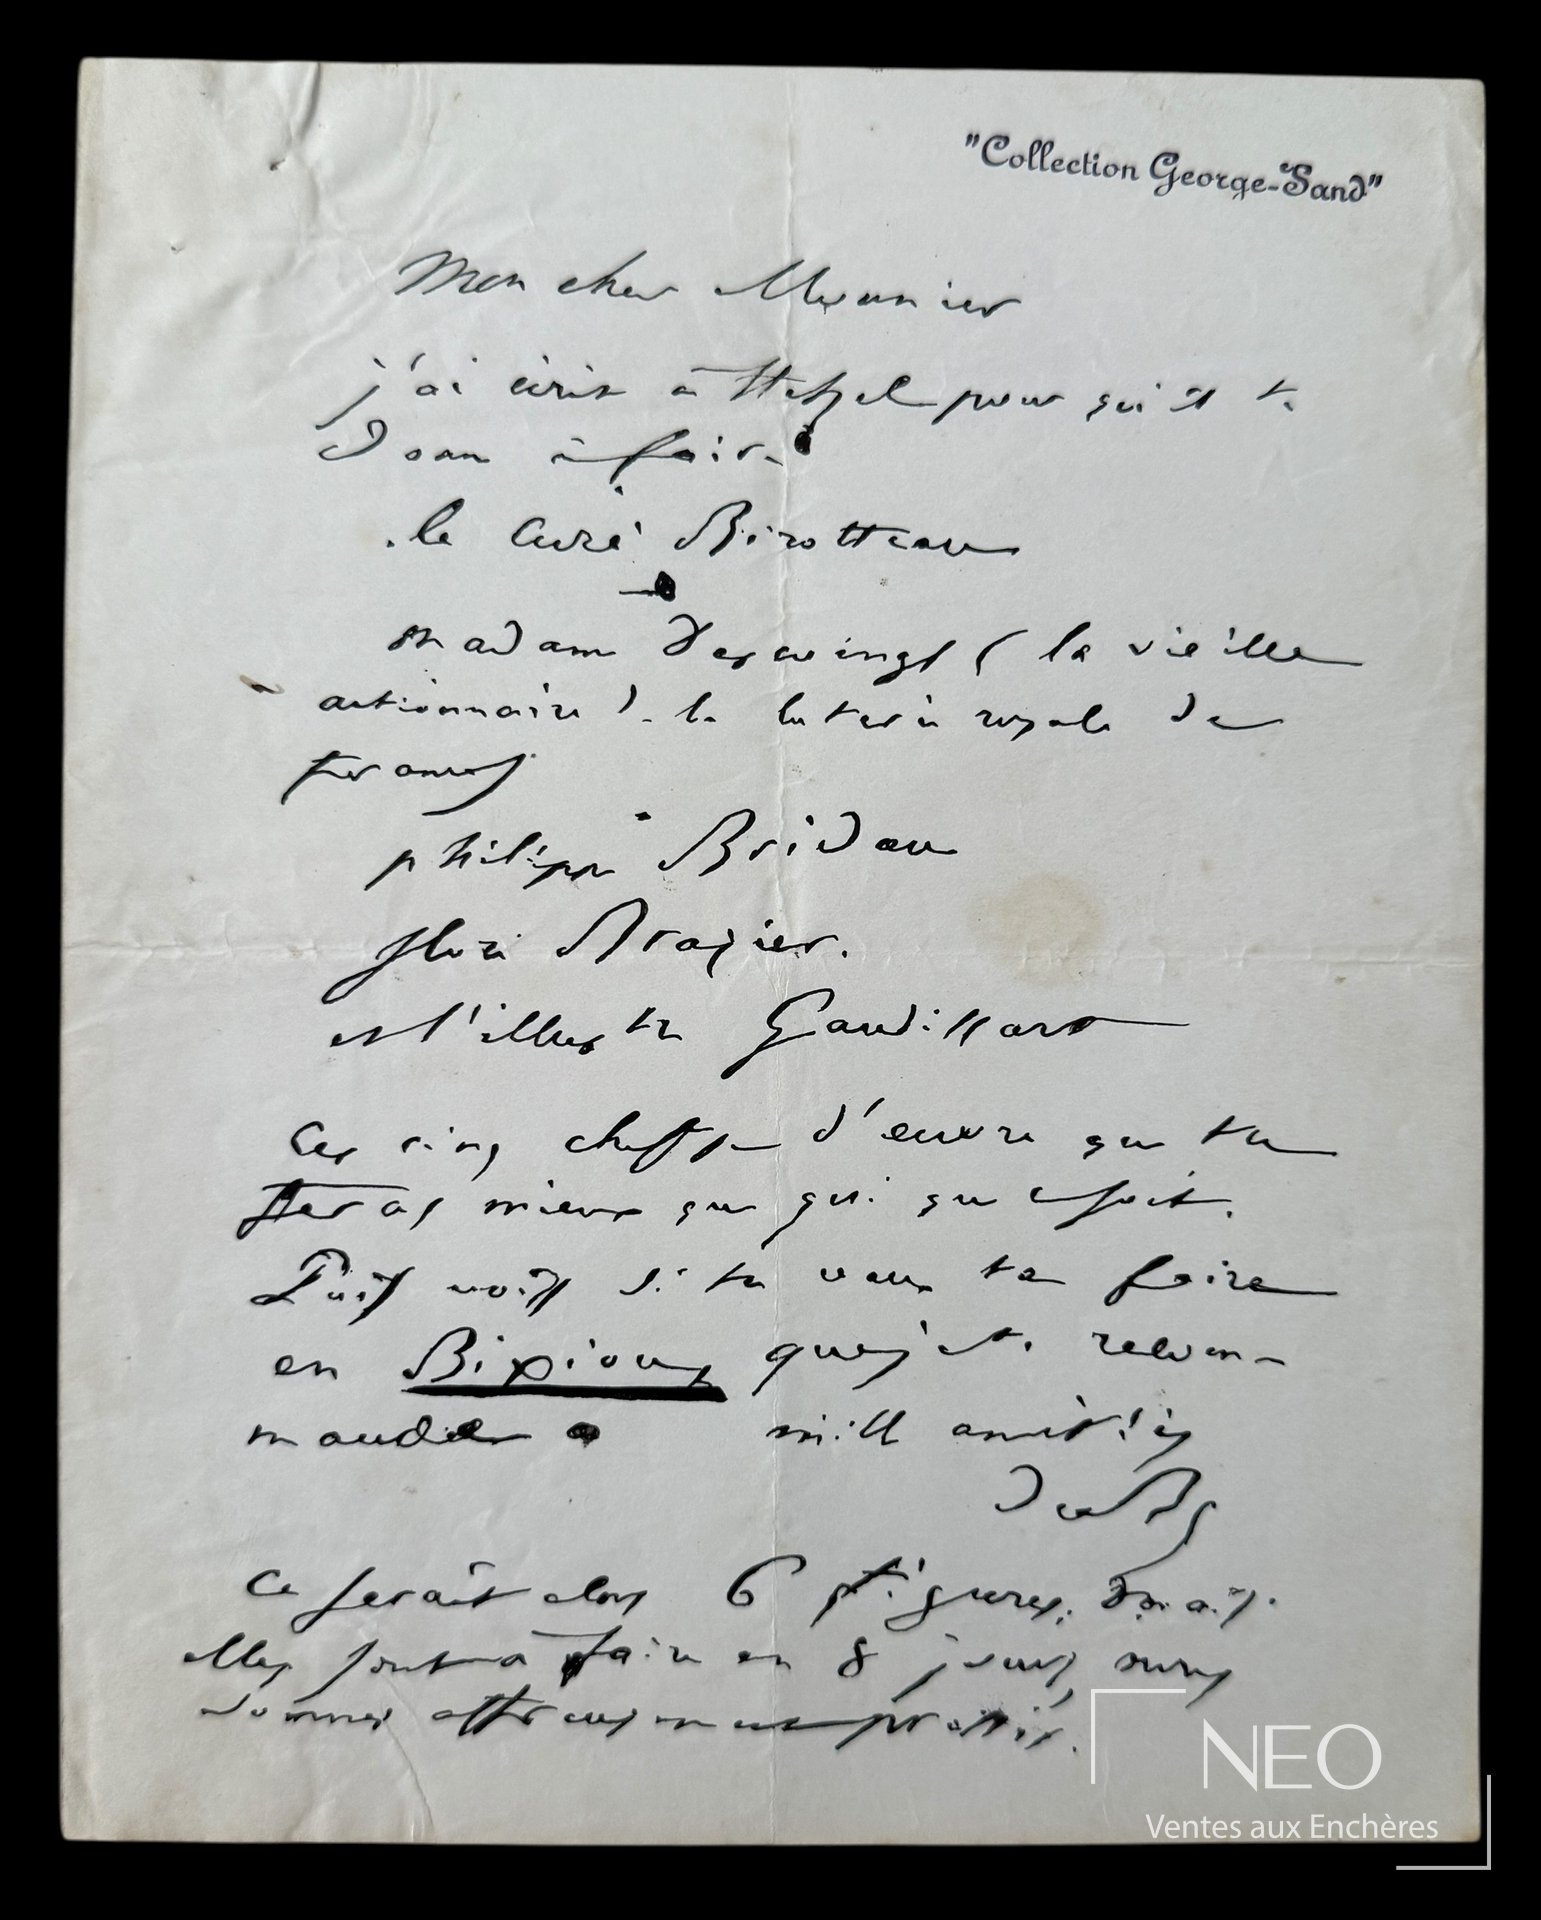 "Collection George-Sand"
Mon cher Meunier
j'ai écrit à Hetzel pour qu'il te
donn à faire
le curé Birotteau
madam Descoings ( la vieille
actionnaire ) de la loterie royale de
france
philippe Bridau
flore Brazier.
et l'illustre Gaudissart
Ces cinq cheffs d'œuvre que tu
feras mieux que qui que ce soit.
Puis vois si tu veux te faire
en Bixiou, que je te recom-
mande mill amitiés
de Bc
Ce serait alors 6 figures, mais
elles sont à faire en 8 jours,
NEO
Ventes aux Enchères